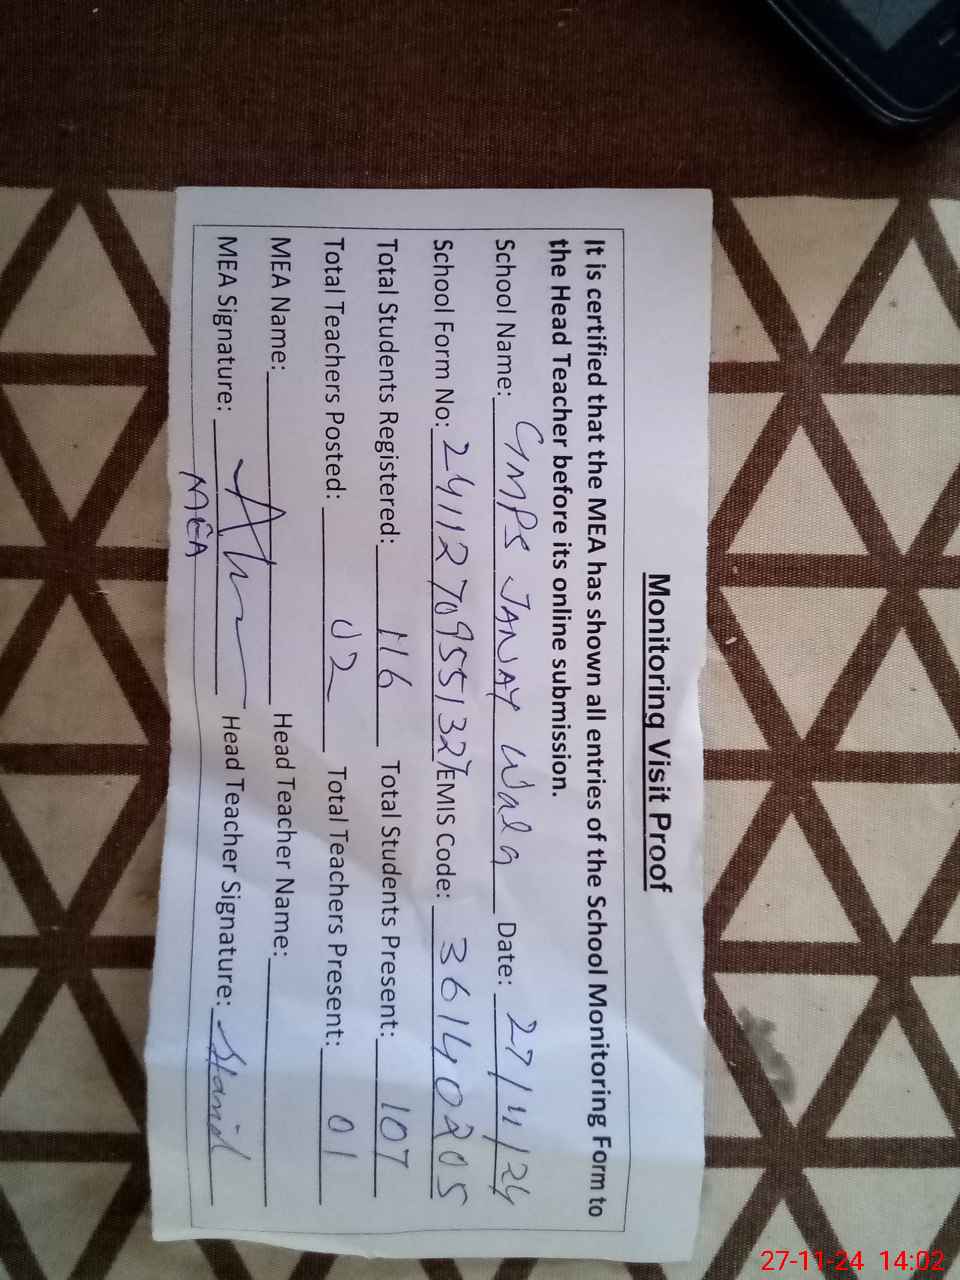 Monitoring Visit Proof
It is certified that the MEA has shown all entries of the School Monitoring Form to
the Head Teacher before its online submission.
School Name: GMPS JANAY Wala Date: 27/11/24
School Form No: 24112709551327 EMIS Code: 36140205
Total Students Registered: 116 Total Students Present: 107
Total Teachers Posted: 02 Total Teachers Present: 01
MEA Name: Head Teacher Name:
MEA Signature: Head Teacher Signature: Hamid
MEA
27-11-24 14:02